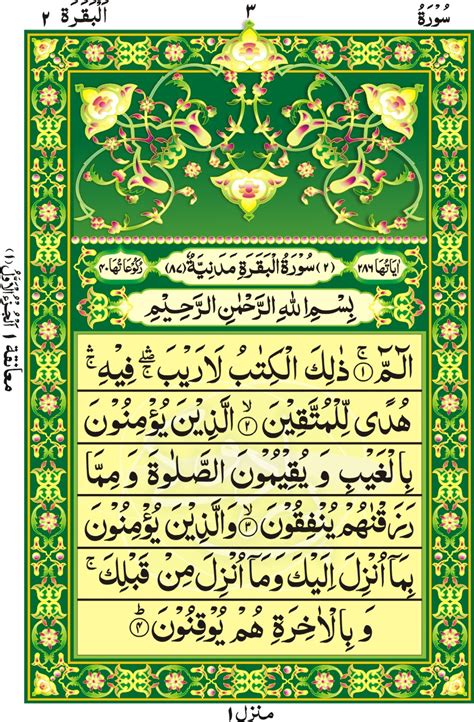 سُوْرَةُ ٣ اَلْبَقَرَة ٢
اٰيَاتُهَا ٢٨٦ (٢) سُوْرَةُ الْبَقَرَةِ مَدَنِيَّةٌ (٨٧) رُكُوْعَاتُهَا ٤٠
بِسْمِ اللهِ الرَّحْمٰنِ الرَّحِيْمِ
الٓمّٓ ۚ﴿١﴾ ذٰلِكَ الْكِتٰبُ لَا رَيْبَ ۛۖ فِيْهِ ۛۚ
هُدًى لِّلْمُتَّقِيْنَ ۙ﴿٢﴾ الَّذِيْنَ يُؤْمِنُوْنَ
بِالْغَيْبِ وَ يُقِيْمُوْنَ الصَّلٰوةَ وَ مِمَّا
رَزَقْنٰهُمْ يُنْفِقُوْنَ ۙ﴿٣﴾ وَالَّذِيْنَ يُؤْمِنُوْنَ
بِمَاۤ اُنْزِلَ اِلَيْكَ وَمَاۤ اُنْزِلَ مِنْ قَبْلِكَ ۚ
وَ بِالْاٰخِرَةِ هُمْ يُوْقِنُوْنَ ؕ﴿٤﴾
معانقة ١ اَلْجُزْءُ الْاَوَّلُ (١)
منزل ١